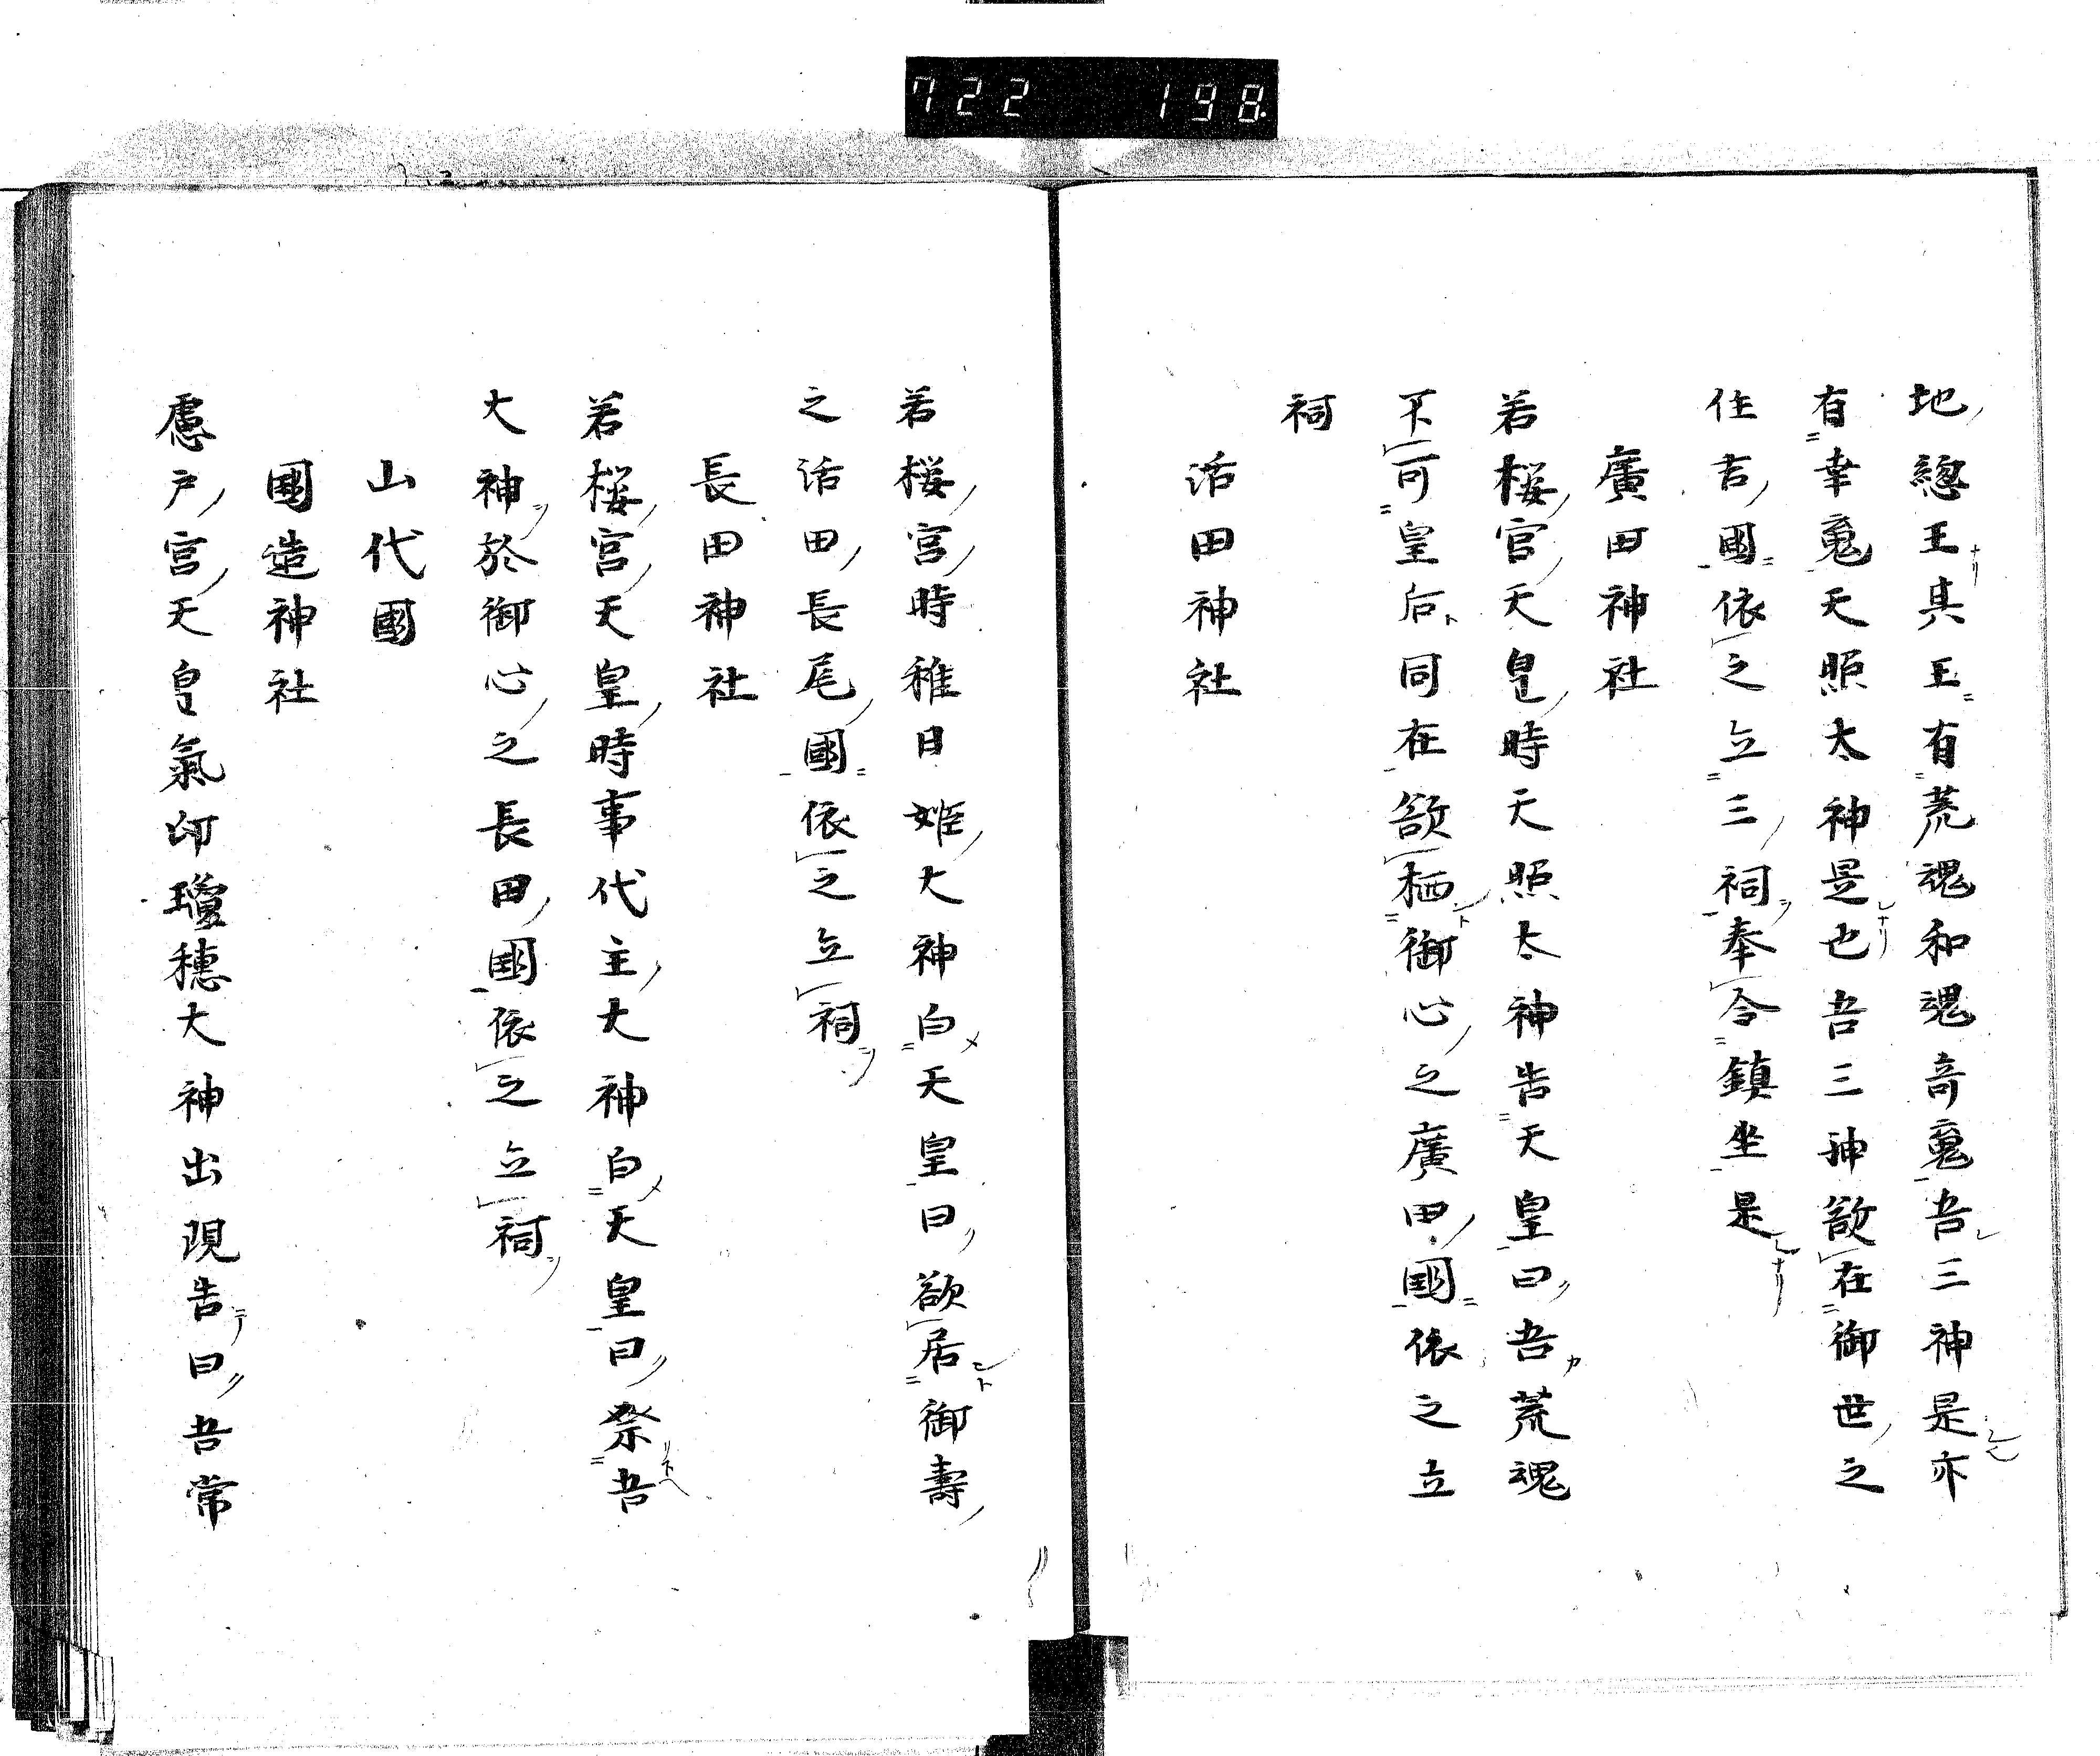 722 198
地総王其王有荒魂和魂奇魂吾三神是亦
有幸魂天照太神是也吾三神欲在御世之
住吉國依之立三祠奉令鎮坐是
廣田神社
若桜宮天皇時天照太神告天皇曰吾荒魂
不可皇后同在欲栖御心之廣田國依之立
祠
活田神社
若桜宮時稚日姫大神白天皇曰欲居御壽
之活田長尾國依之立祠
長田神社
若桜宮天皇時事代主大神白天皇曰祭吾
大神於御心之長田國依之立祠
山代國
國造神社
慮戸宮天皇氣印瓊穗大神出現告曰吾常